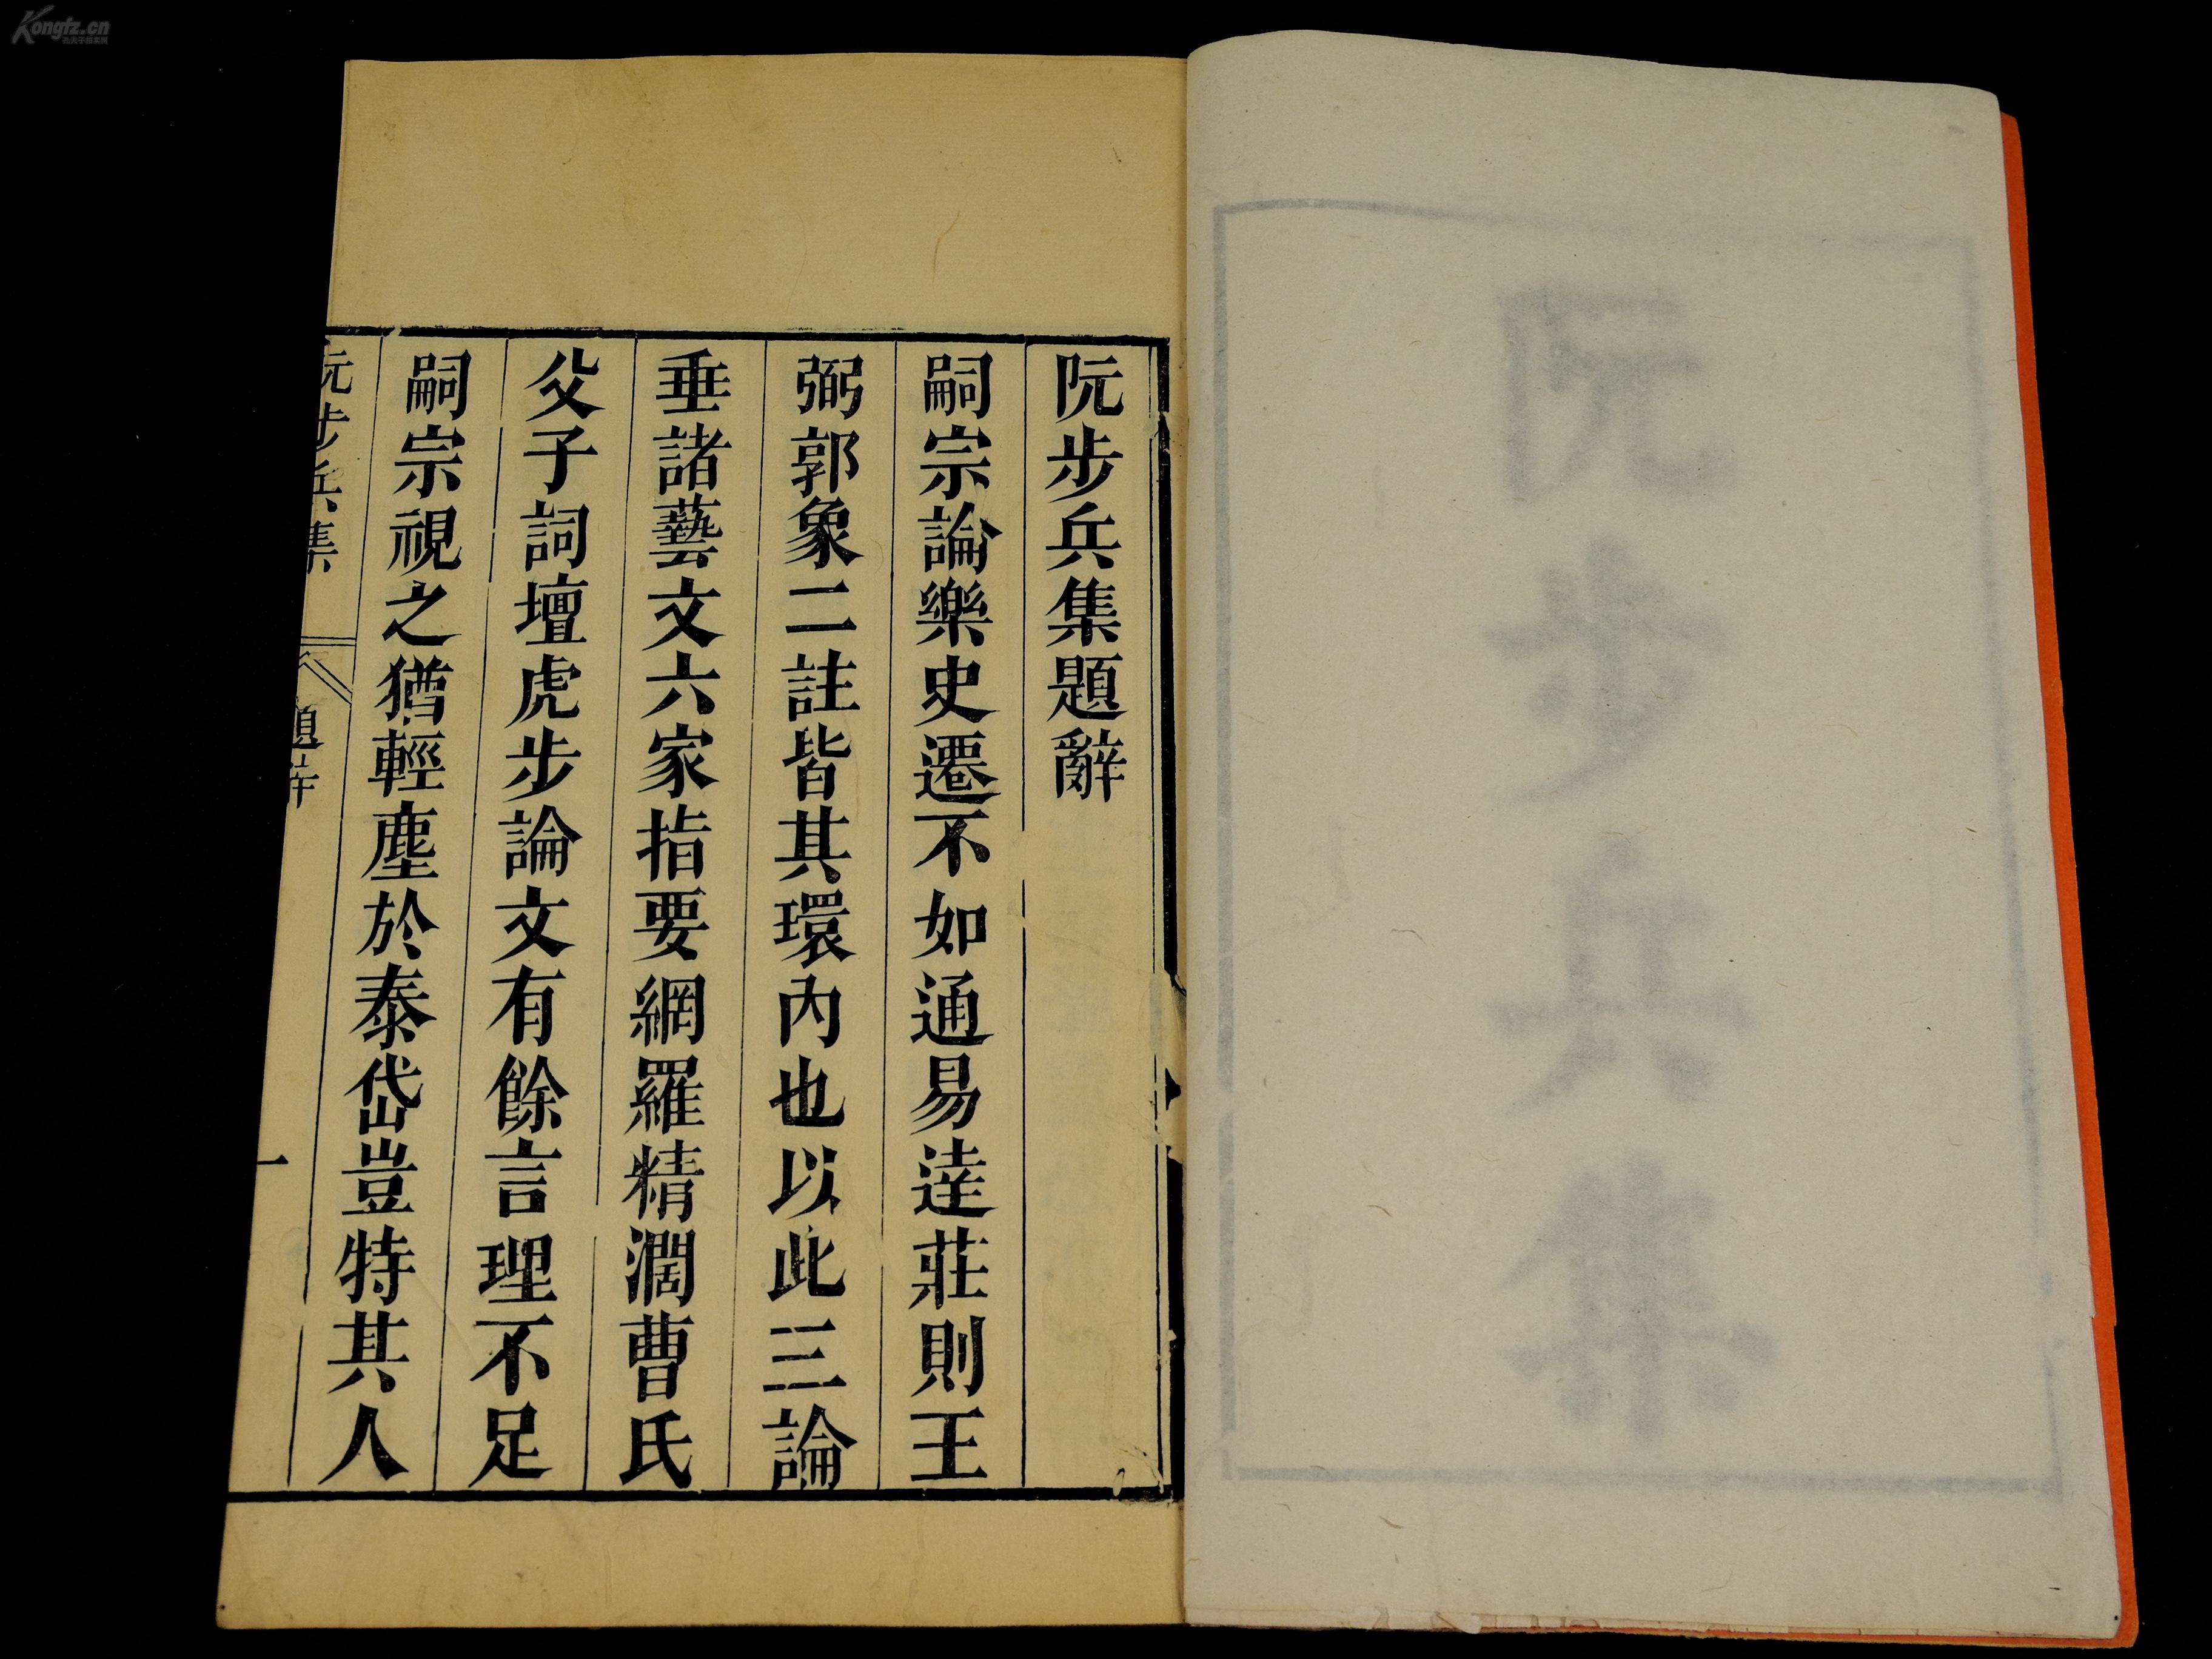 阮步兵集題辭
嗣宗論樂史遷不如通易達莊則王
弼郭象二註皆其環內也以此三論
垂諸藝文六家指要網羅精濶曹氏
父子詞壇虎步論文有餘言理不足
嗣宗視之猶輕塵於泰岱豈特其人
阮步兵集
題辭
一
阮步兵集
Kongfz.cn